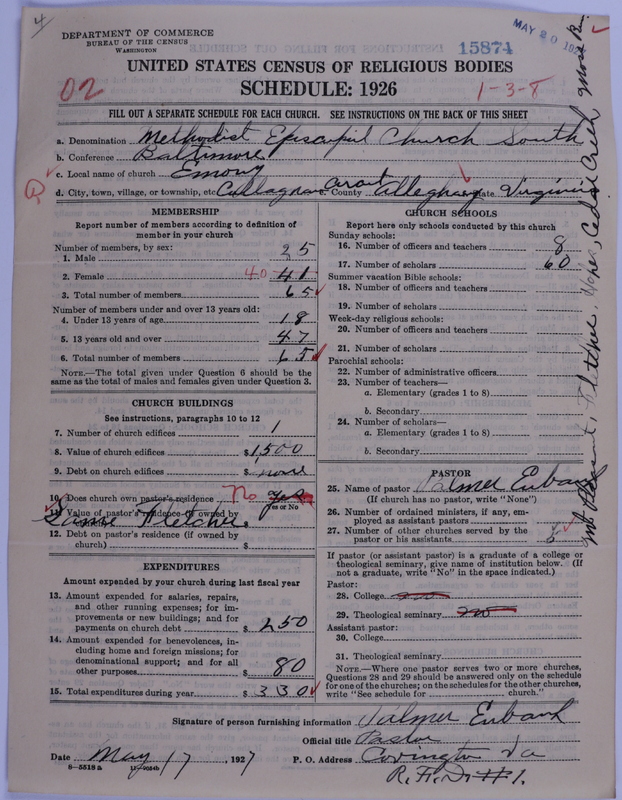 4
DEPARTMENT OF COMMERCE
BUREAU OF THE CENSUS
WASHINGTON
MAY 20 192
15874
UNITED STATES CENSUS OF RELIGIOUS BODIES
02
SCHEDULE: 1926
1-3-8
FILL OUT A SEPARATE SCHEDULE FOR EACH CHURCH. SEE INSTRUCTIONS ON THE BACK OF THIS SHEET
a. Denomination Methodist Episcopal Church South
b. Conference Baltimore
c. Local name of church Emory
d. City, town, village, or township, etc. Callaghan Circuit County Alleghany State Virginia
MEMBERSHIP
Report number of members according to definition of
member in your church
Number of members, by sex:
1. Male 25
2. Female 40 41
3. Total number of members 65
Number of members under and over 13 years old:
4. Under 13 years of age 18
5. 13 years old and over 47
6. Total number of members 65
NOTE.—The total given under Question 6 should be the
same as the total of males and females given under Question 3.
CHURCH BUILDINGS
See instructions, paragraphs 10 to 12
7. Number of church edifices 1
8. Value of church edifices $1,500
9. Debt on church edifices $ none
10. Does church own pastor's residence No Yes
Yes or No
11. Value of pastor's residence (if owned by
Same Fletcher $
12. Debt on pastor's residence (if owned by
church) $
EXPENDITURES
Amount expended by your church during last fiscal year
13. Amount expended for salaries, repairs,
and other running expenses; for im-
provements or new buildings; and for
payments on church debt $ 250
14. Amount expended for benevolences, in-
cluding home and foreign missions; for
denominational support; and for all
other purposes $ 80
15. Total expenditures during year $ 330
CHURCH SCHOOLS
Report here only schools conducted by this church
Sunday schools:
16. Number of officers and teachers 8
17. Number of scholars 60
Summer vacation Bible schools:
18. Number of officers and teachers
19. Number of scholars
Week-day religious schools:
20. Number of officers and teachers
21. Number of scholars
Parochial schools:
22. Number of administrative officers
23. Number of teachers—
a. Elementary (grades 1 to 8)
b. Secondary
24. Number of scholars—
a. Elementary (grades 1 to 8)
b. Secondary
PASTOR
25. Name of pastor Palmer Eubank
(If church has no pastor, write "None")
26. Number of ordained ministers, if any, em-
ployed as assistant pastors
27. Number of other churches served by the
pastor or his assistants
If pastor (or assistant pastor) is a graduate of a college or
theological seminary, give name of institution below. (If
not a graduate, write "No" in the space indicated.)
Pastor:
28. College no
29. Theological seminary no
Assistant pastor:
30. College
31. Theological seminary
NOTE.—Where one pastor serves two or more churches,
Questions 28 and 29 should be answered only on the schedule
for one of the churches; on the schedules for the other churches,
write "See schedule for church."
Mt Pleasant, Fletcher, Hope, Cedar Creek,
Signature of person furnishing information Palmer Eubank
Official title Pastor
Date May 17, 1927 P. O. Address Covington Va
8-5518a
R.F.D. #1.